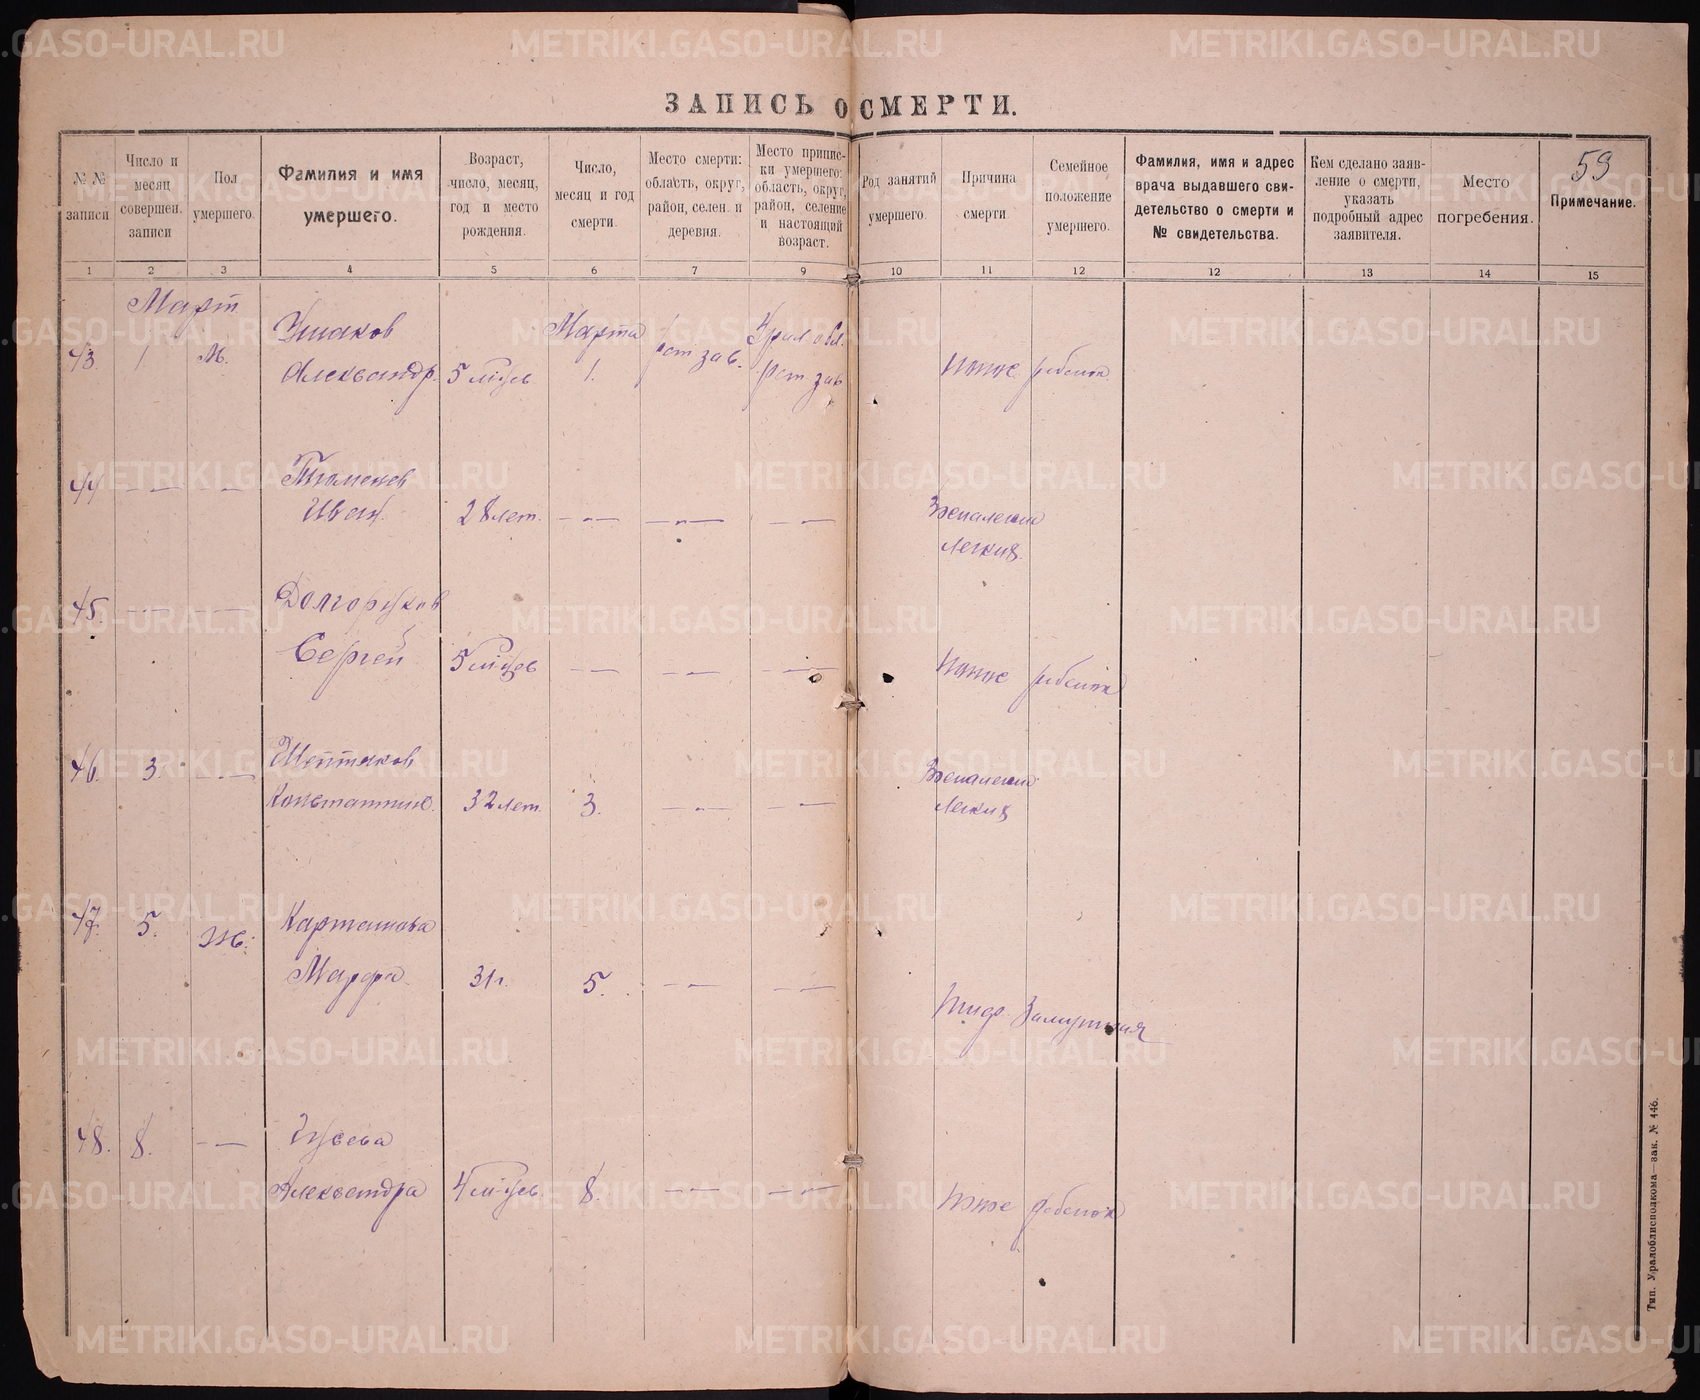 ЗАПИСЬ О СМЕРТИ.
59
№ № записи
Число и месяц совершен. записи
Пол умершего.
Фамилия и имя умершего.
Возраст, число, месяц, год и место рождения.
Число, месяц и год смерти.
Место смерти: область, округ, район, селен. и деревня.
Место приписки умершего: область, округ, район, селение и настоящий возраст.
Род занятий умершего.
Причина смерти.
Семейное положение умершего.
Фамилия, имя и адрес врача выдавшего свидетельство о смерти и № свидетельства.
Кем сделано заявление о смерти, указать подробный адрес заявителя.
Место погребения.
Примечание.
1 2 3 4 5 6 7 9 10 11 12 12 13 14 15
Март
43. 1 М. Ушаков Марта Урал обл.
Александр. 5 месяцев 1. зав. зав. ребенок
44 — — Тюменев
Иван. 28 лет. — „ — — „ — — „ — Воспаление
легких.
45. — — Долгоруков
Сергей 5 месяцев — — — — — — ребенок
46. 3. — —
Константин. 32 лет. 3. — „ — — — Воспаление
легких
47. 5. Ж. Карташова
Марфа. 31 г. 5. — — — — Тиф. Замужняя
48. 8. — — Гусева
Александра 4 месяцев 8. — „ — — „ — ребенок
Тип. Уралоблисполкома—зак. № 446.
METRIKI.GASO-URAL.RU